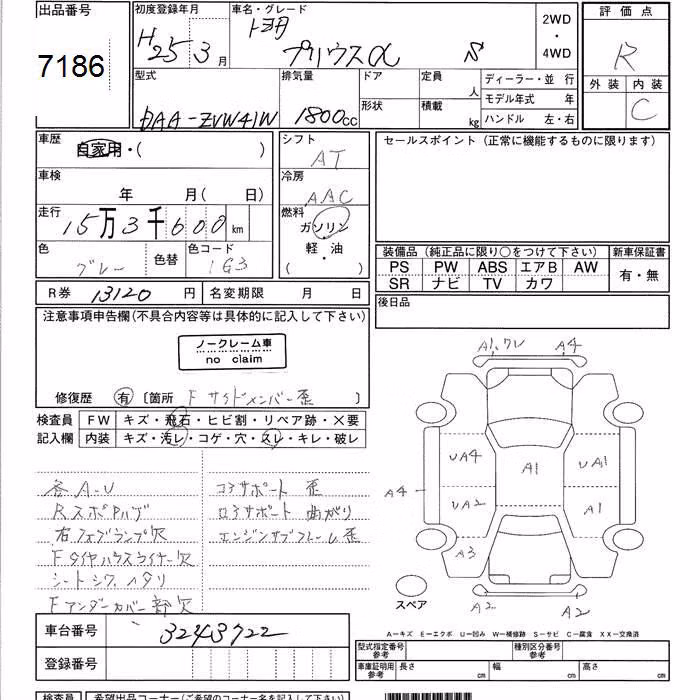 出品番号 初度登録年月 車名・グレード 2WD ・ 4WD 評価点
7186 H25 3月 トヨタ プリウスα S R
外装 内装
C
型式 排気量 ドア 定員 人 ディーラー・並 行
形状 積載 kg モデル年式 年
DAA-ZVW41W 1800cc ハンドル 左・右
車歴 自家用・( ) シフト AT セールスポイント (正常に機能するものに限ります)
車検 年 月( 日) 冷房 AAC
走行 15万3千600km 燃料 ガソリン 軽・油 ( )
色 グレー 色替 色コード 1G3
装備品 (純正品に限り○をつけて下さい) 新車保証書
PS PW ABS エアB AW 有・無
SR ナビ TV カワ
R券 13120 円 名変期限 月 日 後日品
注意事項申告欄(不具合内容等は具体的に記入して下さい)
ノークレーム車
no claim
修復歴 有 〔箇所 F サイドメンバー歪 〕
検査員 FW キズ・飛石・ヒビ割・リペア跡・×要
記入欄 内装 キズ・汚レ・コゲ・穴・スレ・キレ・破レ
各A-U コアサポート 歪
RスポPハゲ ロアサポート 曲がり
右フォグランプ欠 エンジンサブフレーム歪
Fタイヤハウスライナー欠
シートシワ、ヘタリ
Fアンダーカバー部欠
A1 A4
UA4 A1 UA1
A4 UA2 A1
A3
A2 A2
スペア
A-キズ E-エクボ U-凹み W-補修跡 S-サビ C-腐食 XX-交換済
車台番号 3243722
登録番号
型式指定番号 参考 種別区分番号 参考
車庫証明用 参考 長さ cm 幅 cm 高さ cm
検査員 希望出品コーナー(ご希望のコーナー名を記入下さい)